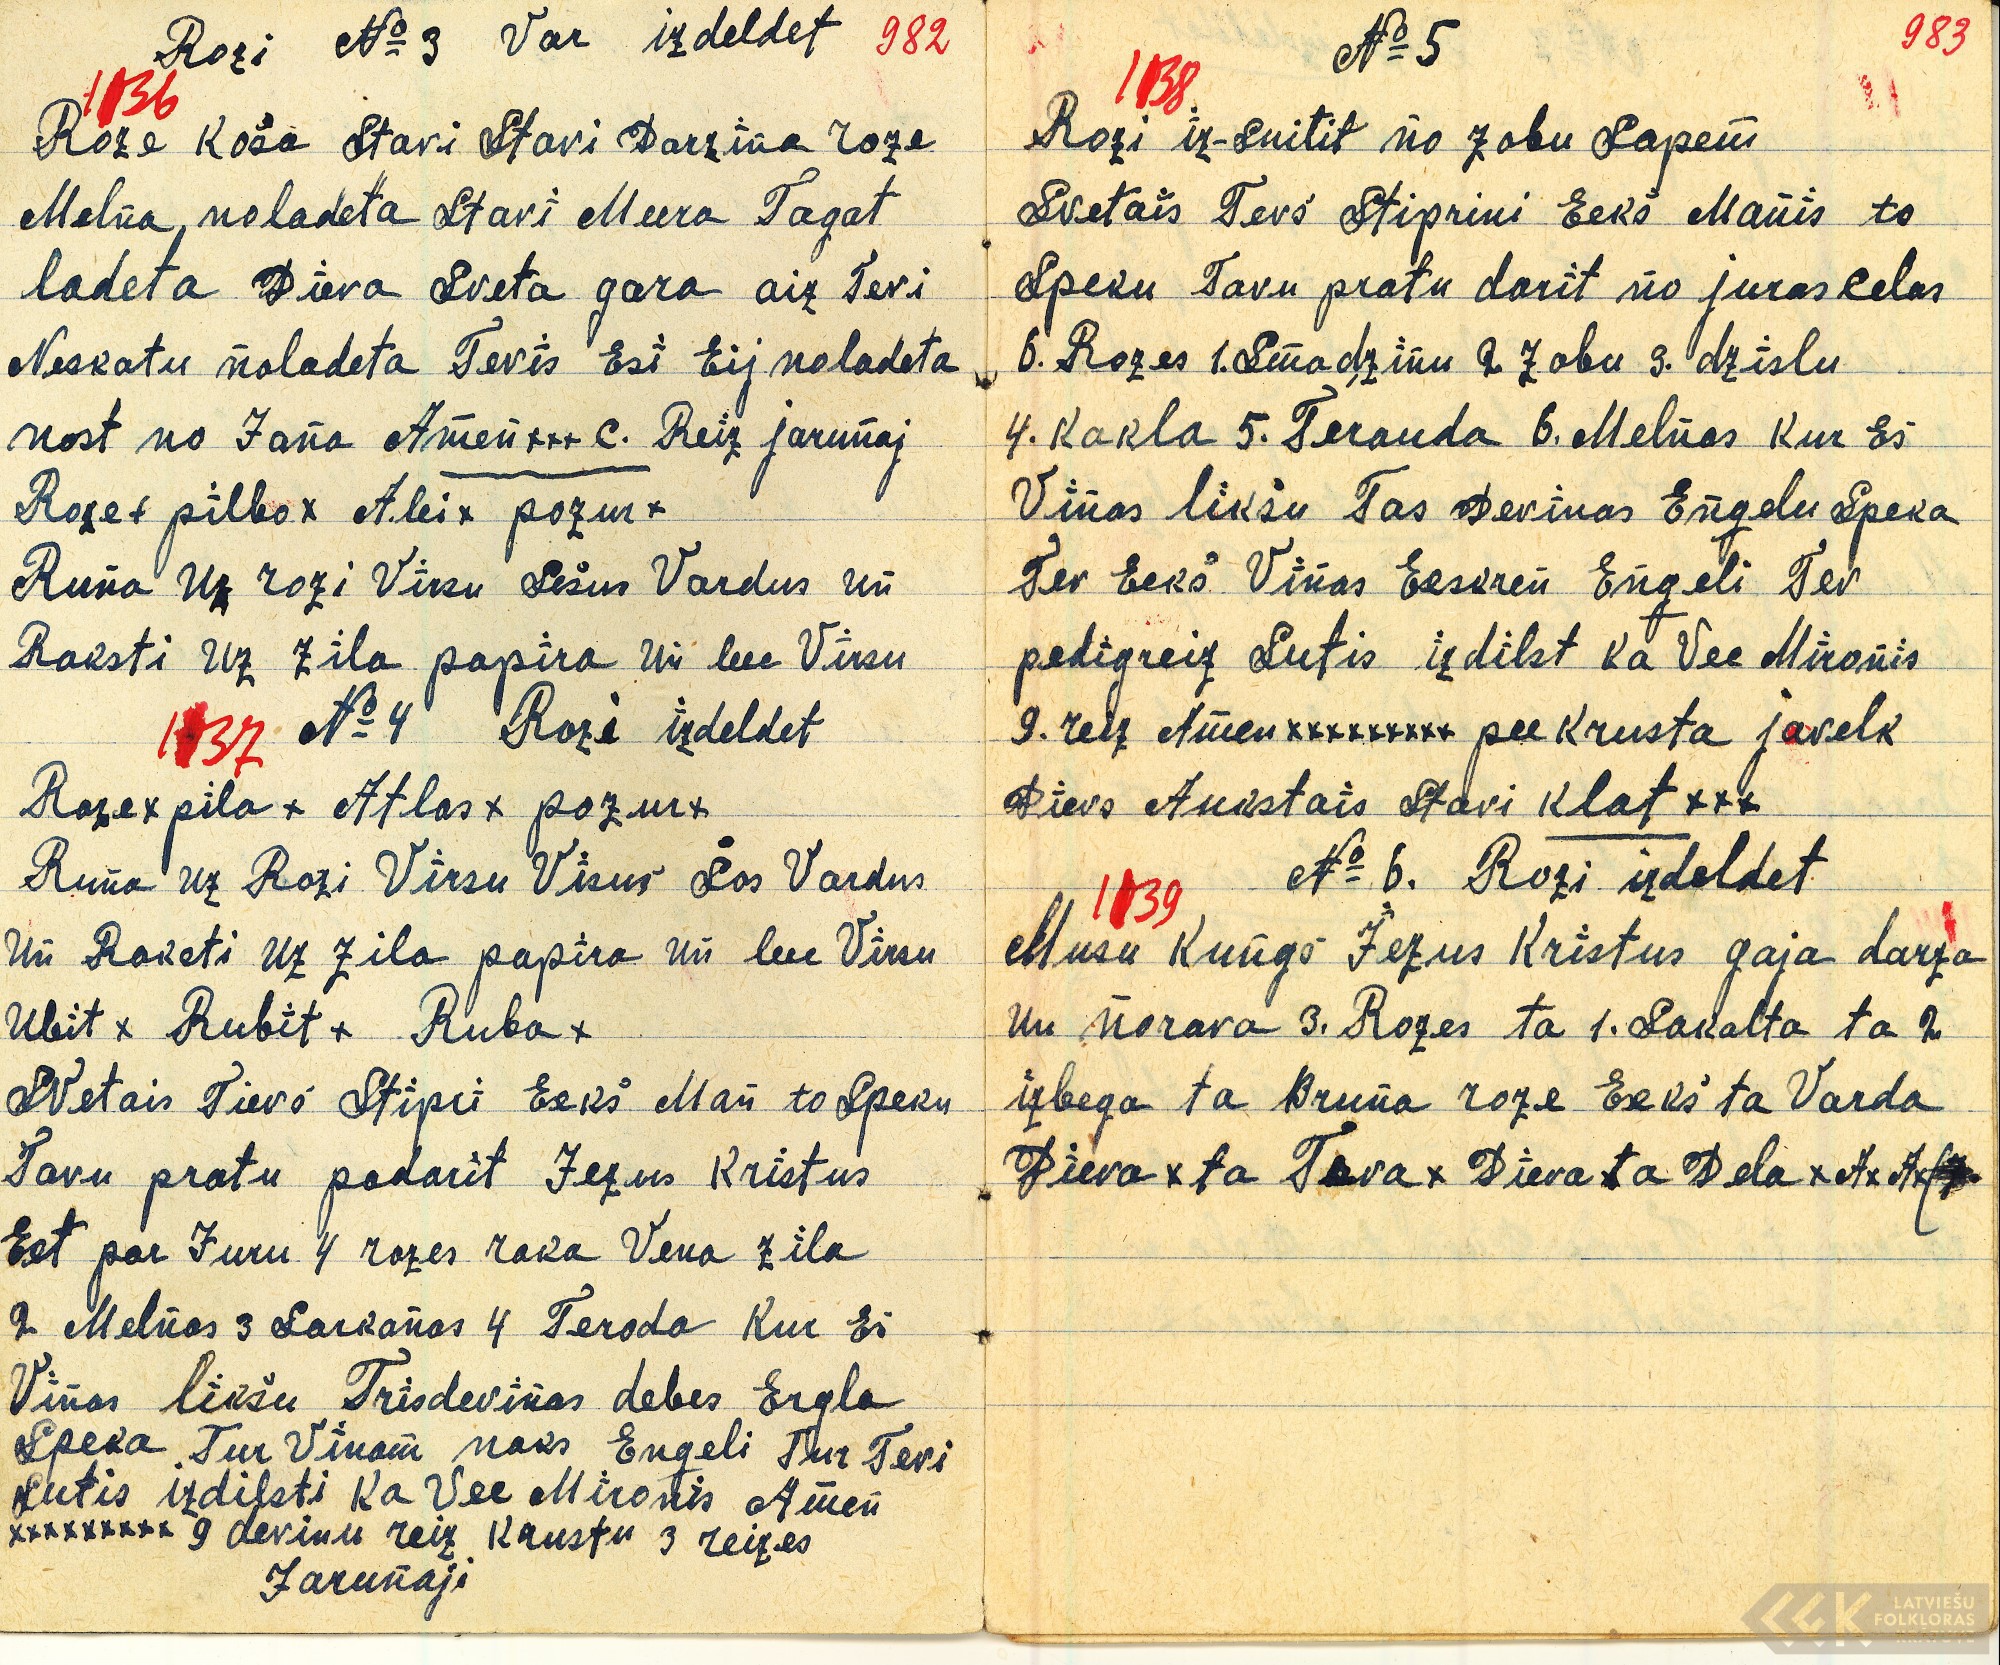 Rozi № 3 Var izdeldet 982
1136
Roze Koša Stavi Stavi Darziña roze
Melña noladeta Stavi Meera Tagat
ladeta Dieva Sveta gara aiz Tevi
Neskatu ñoladeta Tevis Esi Eij noladeta
nost no Jaña Am̃eñ xxx C. Reiz jaruñaj
Roze x pilbo x Albi x pozur x
Ruña uz rozi Virsu Sešus Vardus uñ
Raksti uz Zila papira uñ lee Virsu
1137 № 4 Rozi izdeldet
Roze x pila x Atlas x pozur x
Ruña uz Rozi Virsu Visus Šos Vardus
uñ Raksti uz Zila papira uñ lee Virsu
Ubit x Rubit x Ruba x
SVetais Tievs Stipri Eekš Mañ to Speku
Tavu pratu padarit Jezus Kristus
Eet par Juru 4 rozes roka Vena zila
2 Melñas 3 Sarkañas 4 Teroda Kur Es
Viñas likšu Trisdeviñas debes Ergla
Speka Tur Vinam̃ naks Engeli Tur Tevi
Sutis izdilsti Ka Vee Mironis Am̃eñ
xxxxxxxxx 9 devinu reiz Krustu 3 reizes
Jaruñaji
№ 5 983
1138
Rozi iz-Snitit ño zobu Sapem̃
Svetais Tevs Stiprini Eekš Mañis to
Speku Tavu pratu darit ño juras celas
6. Rozes 1. Sm̃adziñu 2 Zobu 3. dzislu
4. Kakla 5. Terauda 6. Melñas Kur Es
Viñas likšu Tas Devinas Eñgelu Speka
Tev Eekš Viñas Eeskreñ Eñgeli Tev
pedigreiz Sutis izdilst ka Vee Miroñis
9. reiz Am̃en xxxxxxxxx pee Krusta javelk
Dievs Aukstais Stavi Klat xxx
№ 6. Rozi izdeldet
1139
Musu Kuñgs Jezus Kristus gaja darza
un ñorava 3. Rozes ta 1. Sakalta ta 2
izbega ta Bruña roze Eekš ta Varda
Dieva x ta Teva x Dieva ta Dela x A x A x
LATVIEŠU
FOLKLORAS
KRĀTUVE